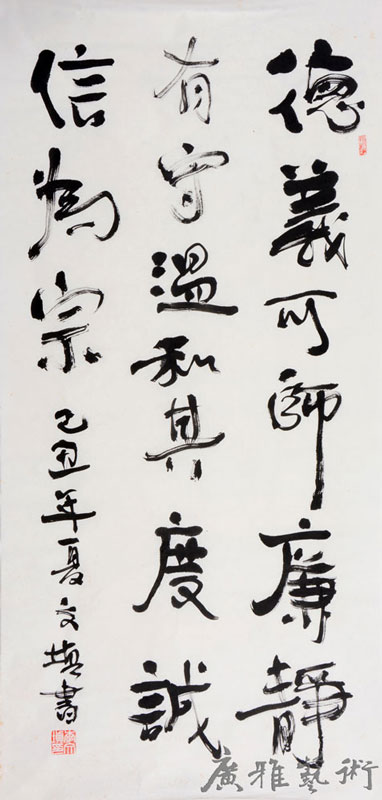 德義可師廉靜
有守溫和其度誠
信為宗
己丑年夏文
書
廣雅藝術